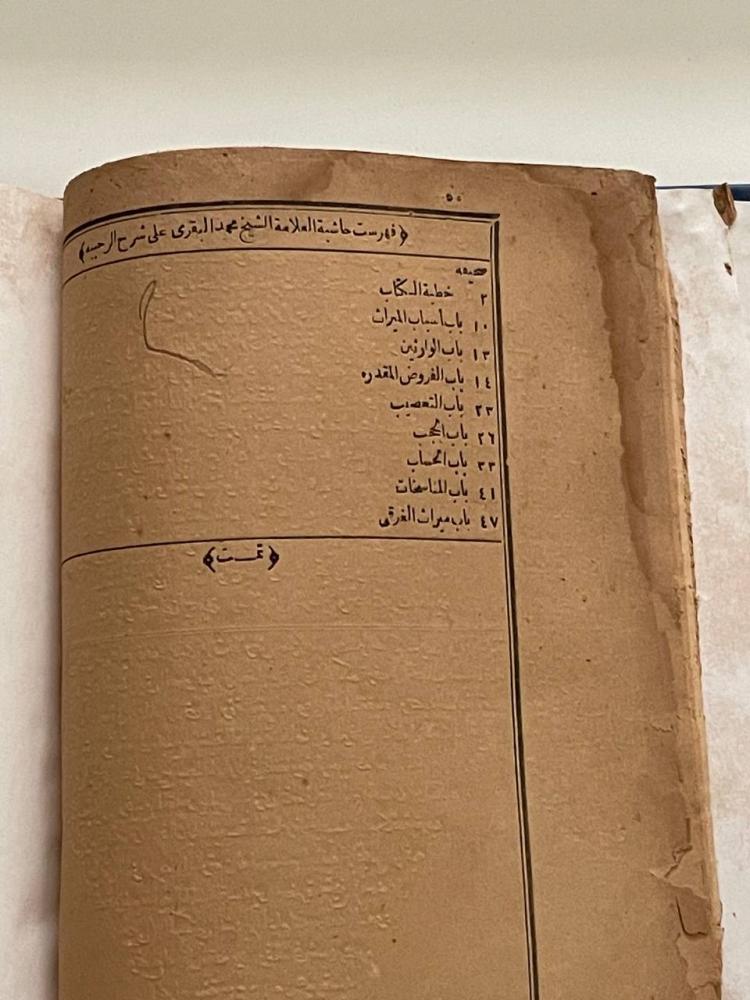 ٥٠
﴿فهرست حاشية العلامة الشيخ محمد البقرى على شرح الرحبيه﴾
صحيفه
٢ خطبة الكتاب
١٠ باب أسباب الميراث
١٣ باب الوارثين
١٤ باب الفروض المقدره
٢٣ باب التعصيب
٢٦ باب الحجب
٣٣ باب الحساب
٤١ باب المناسخات
٤٧ باب ميراث الغرقى
﴿تمت﴾